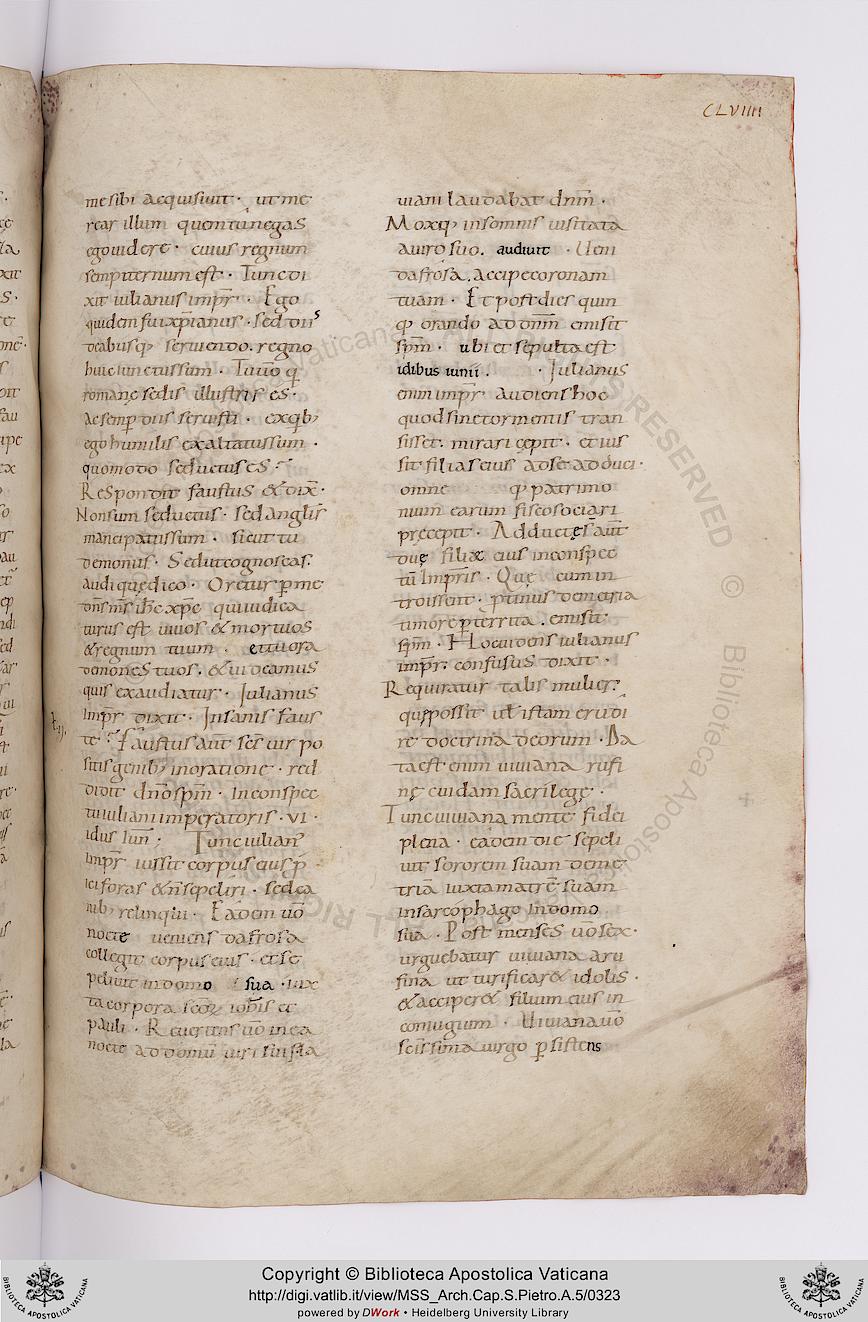 CLVIIII
me sibi acquisiuit · ut me
rear illum quem tu negas
ego uidere · cuius regnum
sempiternum est · Tunc di
xit iulianus imp̄r · Ego
quidem fui xp̄ianus · sed diis
deabusq; seruiendo · regno
huic iunctus sum · Tu uō q̄
romanę sedis illustris es ·
ac semp̄ diis seruisti · ex qb;
ego humilis exaltatus sum ·
quomodo seductus es
Respondit faustus & dix̄ ·
Non sum seductus · sed anglis
mancipatus sum · sicut tu
demoniis · Sed ut cognoscas
audi quę dico · Oretur p̄ me
dn̄s m̄s ih̄c xp̄c qui iudica
turus est uiuos & mortuos
& regnum tuum · et tu ora
demones tuos · & uideamus
quis exaudiatur · Iulianus
imp̄r dixit · Insanis faus
te · Faustus aut̄ sc̄s uir po
sitis genib; in oratione · red
didit dn̄o sp̄m · in conspec
tu iuliani imperatoris · VI ·
idus Iun̄ · Tunc iulian'
imp̄r iussit corpus eius p̄
ici foras & n̄ sepeliri · sed ca
nib; relinqui · Eadem uō
nocte ueniens dafrosa
collegit corpus eius · et se
peliuit in domo sua · iux
ta corpora sc̄oꝝ iohis et
pauli · Reuertens uō in ea
nocte ad domū uiri sui ista
uiam laudabat dn̄m ·
Moxq; in somnis uisitata
a uiro suo · audiuit · Ueni
dafrosa · accipe coronam
tuam · Et post dies quin
q; orando ad dn̄m emisit
sp̄m · ubi et sepulta est
idibus iunii · Iulianus
enim imp̄r audiens hoc
quod sine tormentis tran
sisset · mirari cępit · et ius
sit filias eius ad se adduci ·
omne q; patrimo
nium earum fisco sociari
pręcepit · Adductęs aut̄
duę filiæ eius in conspec
tū imp̄ris · Quę cum in
troissent · p̄tinus demetria
timore p̄territa · emisit
sp̄m · Hoc uidens iulianus
imp̄r · confusus dixit ·
Requiratur talis mulier
quę possit ut istam erudi
re doctrina deorum · Da
ta est enim uiuiana rufi
nę cuidam sacrilegę ·
Tunc uiuiana mente fidei
plena · eadem die sepeli
uit sororem suam deme
triā iuxta matrē suam
in sarcophago in domo
sua · Post menses uō sex ·
urguebatur uiuiana a ru
fina ut turificar& idolis ·
& acciper& filium eius in
coniugium · Uiuiana uō
sc̄issima uirgo p̄sistens
Copyright © Biblioteca Apostolica Vaticana
http://digi.vatlib.it/view/MSS_Arch.Cap.S.Pietro.A.5/0323
powered by DWork • Heidelberg University Library